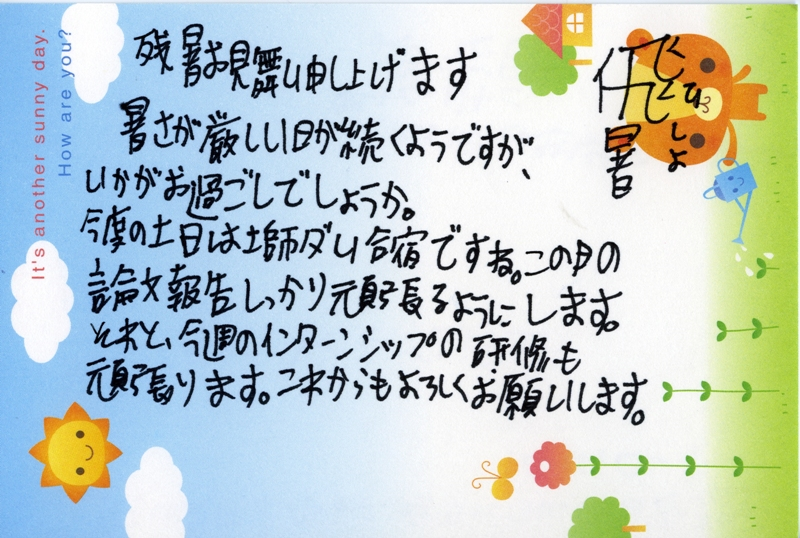 残暑お見舞い申し上げます
暑さが厳しい日が続くようですが、
いかがお過ごしでしょうか。
今度の土日は土師ダム合宿ですね。この日の
論文報告しっかり頑張るようにします。
それと、今週のインターンシップの研修も
頑張ります。これからもよろしくお願いします。
暑
It's another sunny day.
How are you?